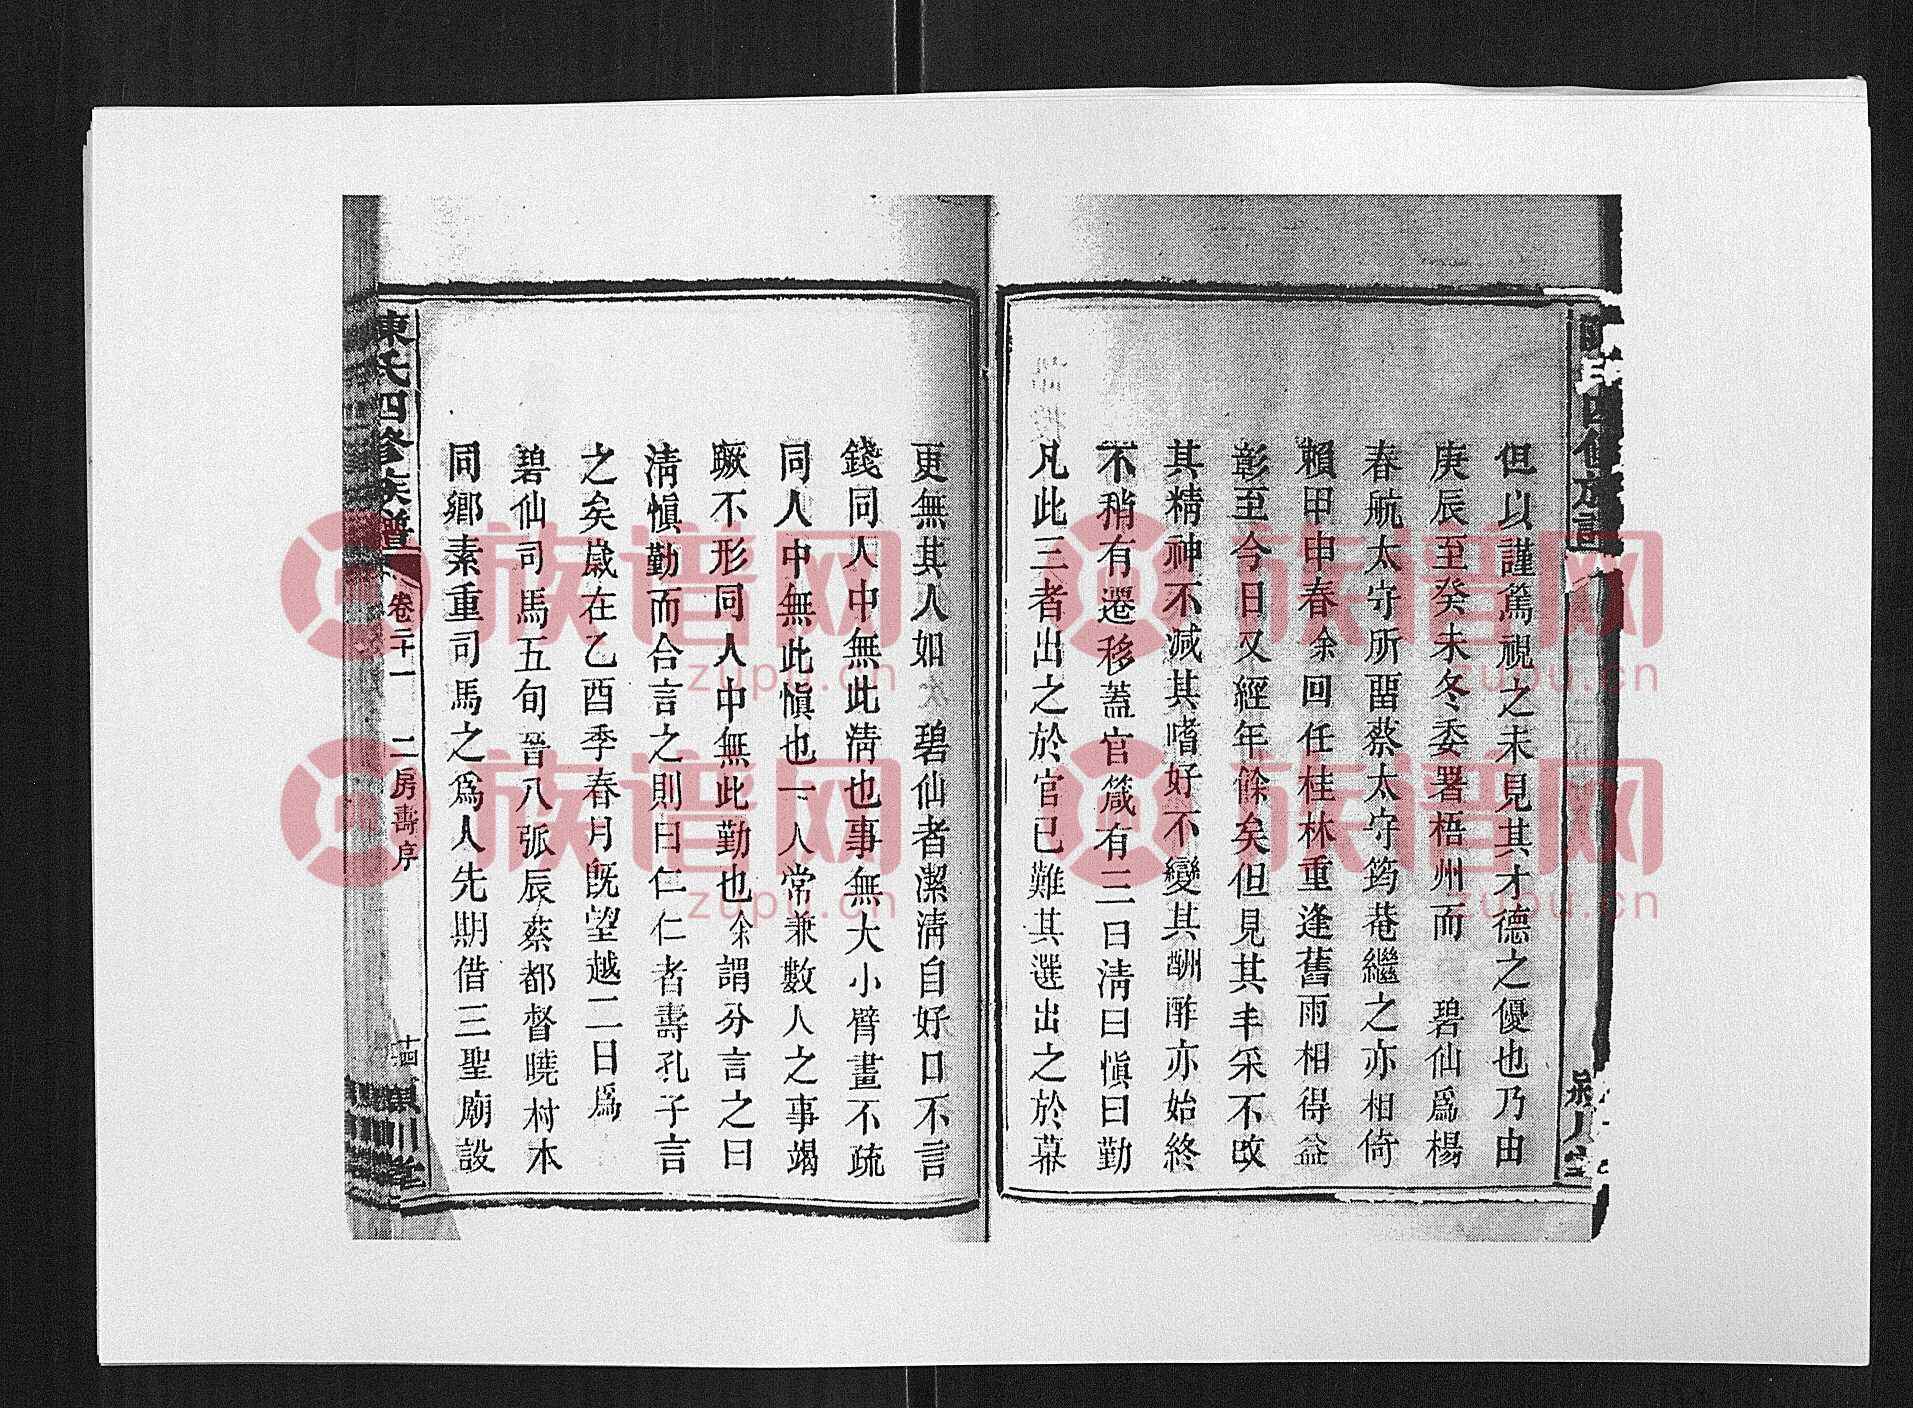 但以謹篤視之未見其才德之優也乃由
庚辰至癸未冬委署梧州而 碧仙爲楊
春航太守所留蔡太守筠菴繼之亦相倚
賴甲申春余回任桂林重逢舊雨相得益
彰至今日又經年餘矣但見其丰采不改
其精神不減其嗜好不變其酬酢亦始終
不稍有遷移蓋官箴有三曰淸曰愼曰勤
凡此三者出之於官已難其選出之於幕
更無其人如 碧仙者潔淸自好口不言
錢同人中無此淸也事無大小臂畫不疏
同人中無此愼也一人常兼數人之事竭
蹶不形同人中無此勤也余謂分言之曰
淸愼勤而合言之則曰仁仁者壽孔子言
之矣歲在乙酉季春月旣望越二日爲
碧仙司馬五旬晉八弧辰蔡都督曉村木
同鄉素重司馬之爲人先期借三聖廟設
陳氏四修族譜
卷二十一 二房壽序
十四 潁川堂
族谱网
zupu.cn
族谱网
zupu.cn
族谱网
zupu.cn
族谱网
zupu.cn